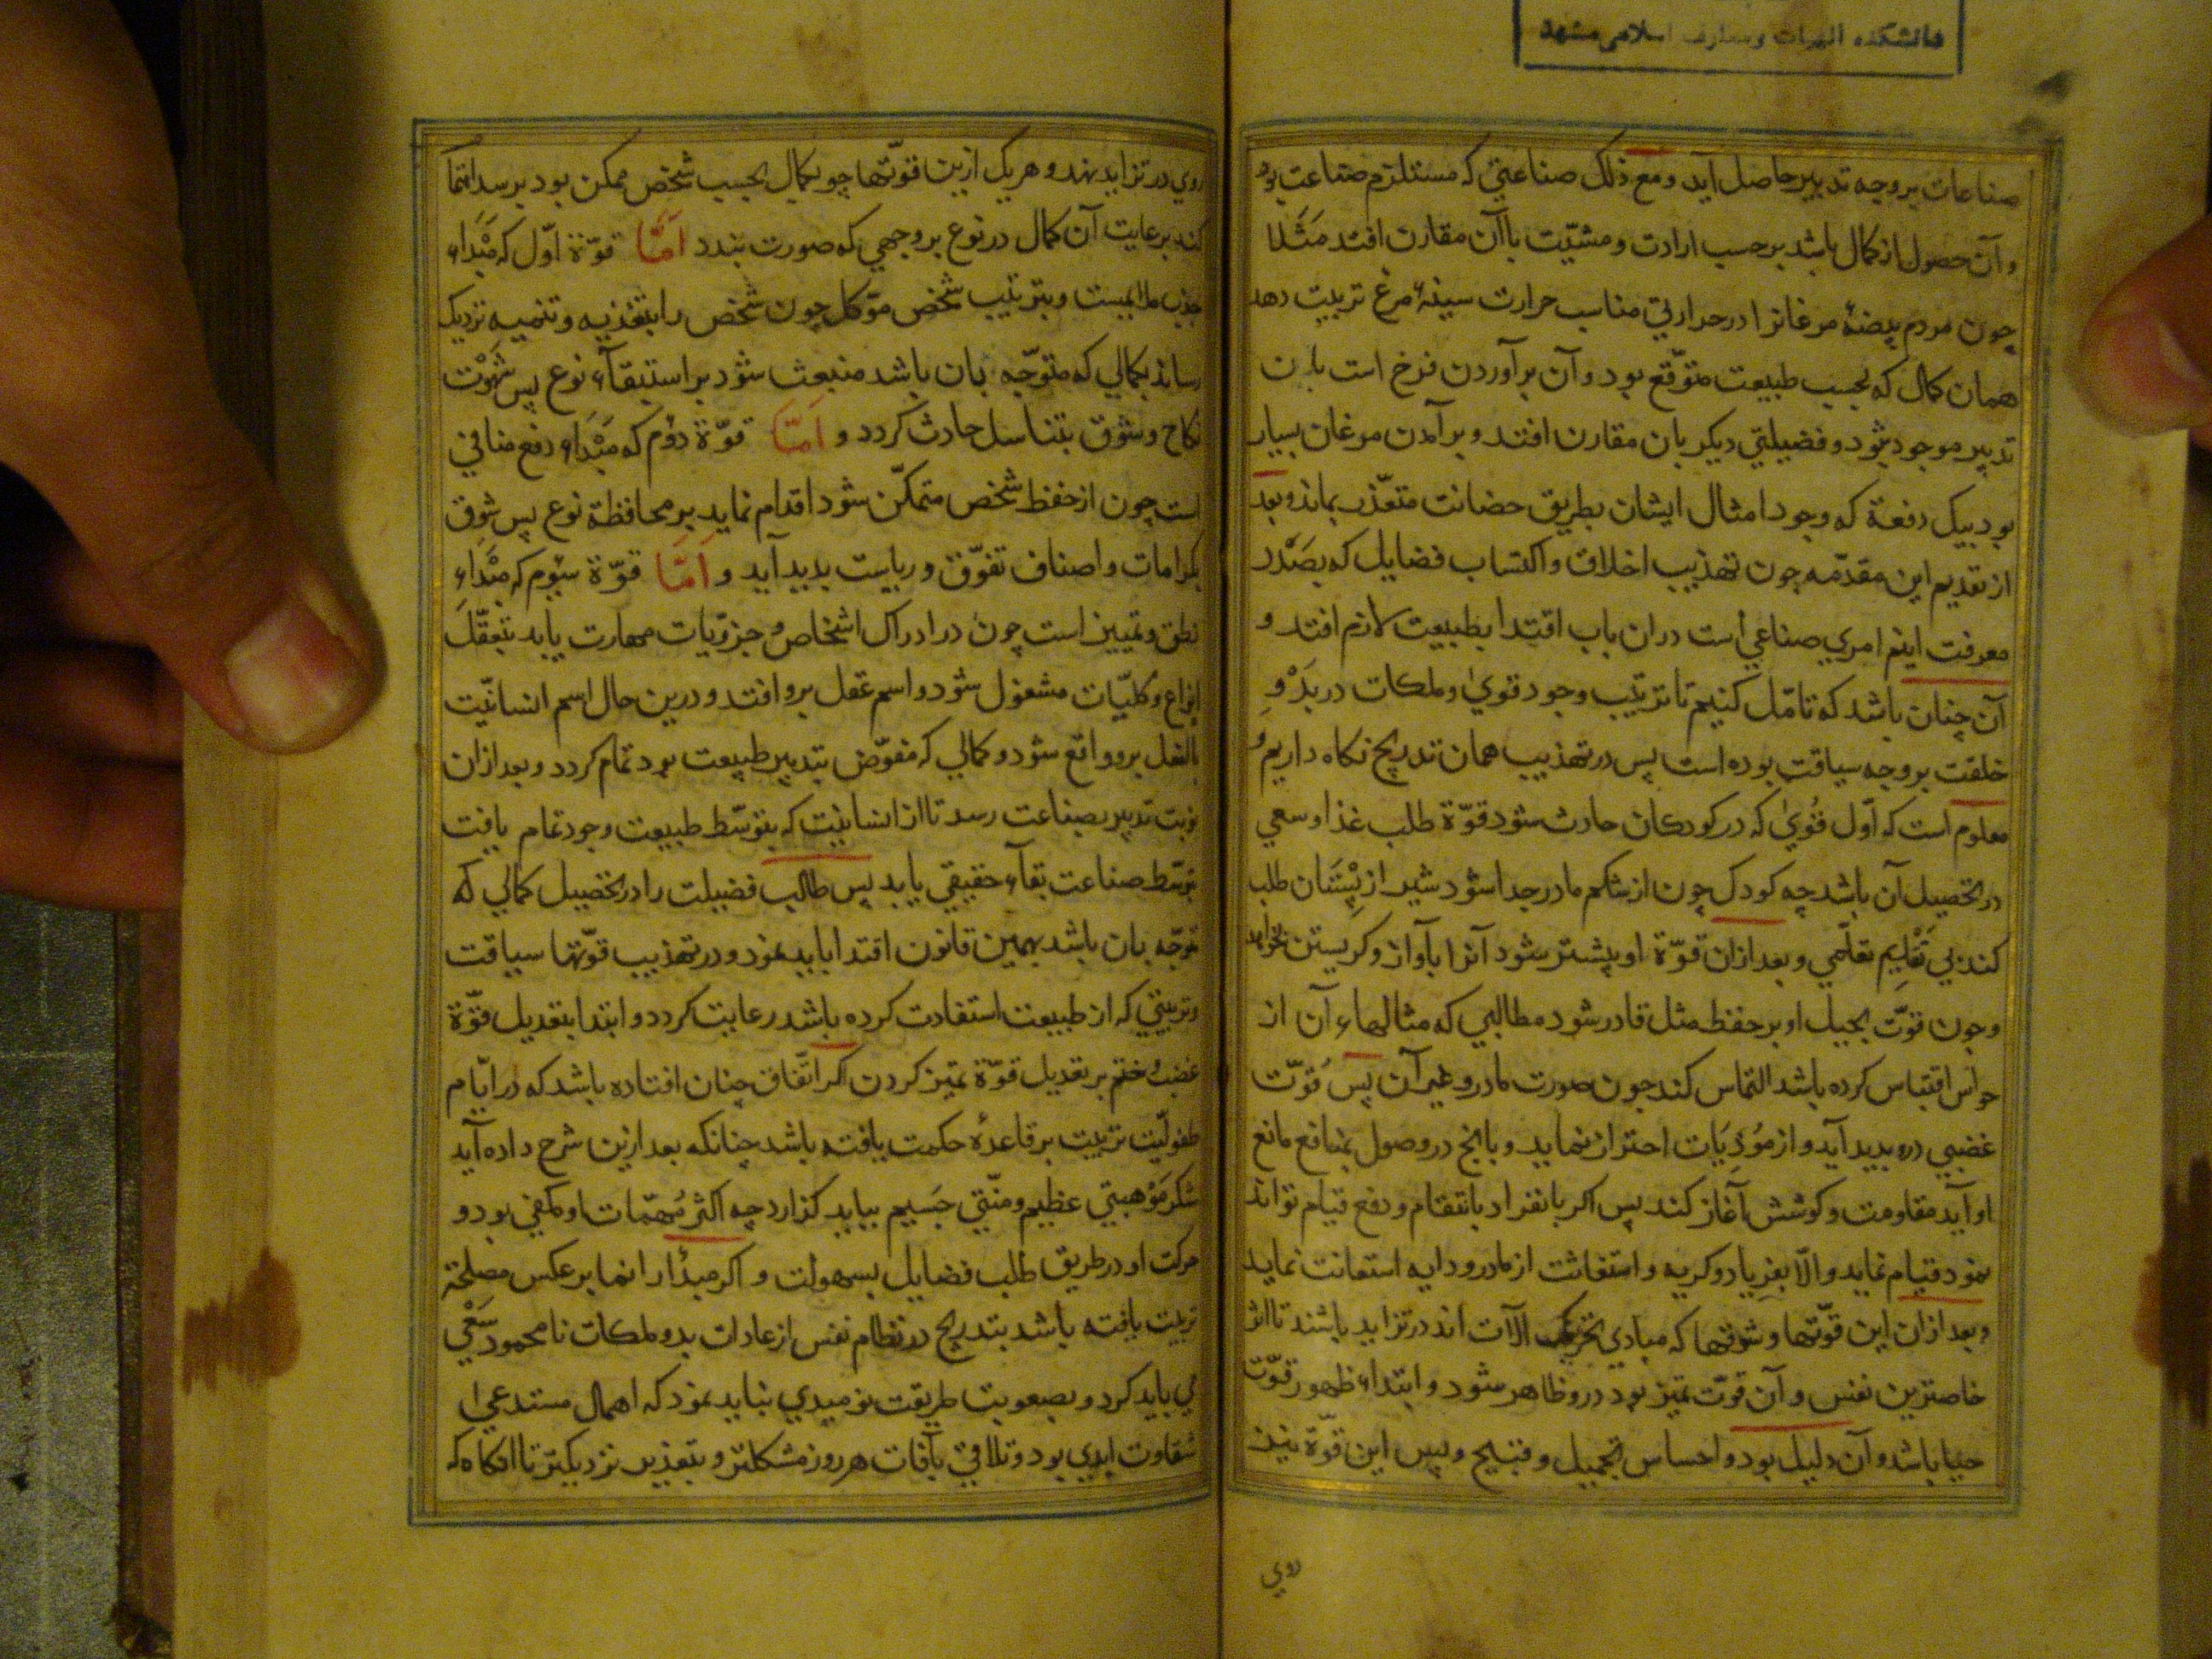 دانشکده الهیات و معارف اسلامی مشهد
صناعات بروجه تدبیر حاصل آید و مع ذلک صناعتی که مستلزم صناعت بود
و آن حصول از کمال باشد بر حسب ارادت و مشیّت با آن مقارن افتد مَثَلا
چون مردم بیضهٔ مرغانرا در حرارتی مناسب حرارت سینهٔ مرغ تربیت دهد
همان کمال که بحسب طبیعت متوقّع بود و آن برآوردن فرخ است بان
تدبیر موجود شود و فضیلتی دیکر بان مقارن افتد و بر آمدن مرغان بسیار
بود بیک دفعة که وجود امثال ایشان بطریق حضانت متعذّر بماند و بعد
از تقدیم این مقدّمه چون تهذیب اخلاق و اکتساب فضایل که بصَدْد
معرفت اینم امری صناعی است دران باب اقتدا بطبیعت لازم افتد و
آن چنان باشد که تامّل کنیم تا ترتیب وجود قوی و ملکات در بَدْوِ
خلقت بروجه سیاقت بوده است پس در تهذیب همان تدریج نکاه داریم و
معلوم است که اوّل قُویٰ که در کودکان حادث شود قوّة طلب غذا و سعی
در تحصیل آن باشد چه کودک چون از شکم مادر جدا شود شیر از پِسْتَان طلب
کند بی تَعْلِیم تعلّمی و بعد ازان قوّة او بیشتر شود آنرا بآواز و کریستن بخواهد
و چون قوّت تخیل او بر حفظ مثل قادر شود مطالبی که مثالهاء آن از
حواس اقتباس کرده باشد التماس کند چون صورت مادر و غیر آن پس قُوّت
غضبی درو بدید آید و از مُؤذِیَات احتراز نماید و بانج در وصول بمنافع مانع
او آید مقاومت و کوشش آغاز کند پس اکر بانفراد بانتقام و دفع قیام تواند
نمود قیام نماید و الّا بفریاد و کریه و استغاثت از مادر و دایه استعانت نماید
و بعد ازان این قوّتها و شوقها که مبادی تحریک آلات اند در تزاید باشند تا اثر
خاصترین نفس و آن قوّت تمیز بود درو ظاهر شود و ابتداء ظهور قوّت
حیا باشد و آن دلیل بود و احساس بجمیل و قبیح و پس این قوّة نیز
روی
روی در تزاید نهد و هر یک ازین قوّتها چو بکمال بحسب شخص ممکن بود برسد اهتما
کند برعایت آن کمال در نوع بروجهی که صورت بندد امّا قوّة اوّل که مَبْدَاء
جذب ملایمست و بترتیب شخص موّکل چون شخص را بتغذیه و تنمیه نزدیک
رساند بکمالی که متوّجه بان باشد منبعث شود بر استبقآء نوع پس شَهْوَت
نکاح و شوق بتناسل حادث کردد و امّا قوّة دوم که مَبْدَاء دفع منافی
است چون از حفظ شخص متمکّن شود اقدام نماید بر محافظة نوع پس شوق
بکرامات و اصناف تفوّق و ریاست بدید آید و امّا قوّة سیوم که مبْدَاء
نطق و تمییز است چون در ادراک اشخاص و جزوّیات مهارت یابد بتعقّل
انواع و کلیّات مشغول شود و اسم عقل برو افتد و درین حال اسم انسانیّت
بالفعل برو واقع شود و کمالی که مفوّض بتدبیر طبیعت بود تمام کردد و بعد ازان
نوبت تدبیر بصناعت رسد تا از انسانیت که بتوسّط طبیعت وجود تمام یافت
بتوسّط صناعت بقآء حقیقی یابد پس طالب فضیلت را در تحصیل کمالی که
توجّه بان باشد بهمین قانون اقتدا باید نمود و در تهذیب قوّتها سیاقت
و ترتیبی که از طبیعت استفادت کرده باشد رعایت کردد و ابتدا بتعدیل قوّة
غضب و ختم بر تعدیل قوّة تمیز کردن اکر اتّفاق چنان افتاده باشد که در ایّام
طفولیّت تربیت بر قاعدهٔ حکمت یافته باشد چنانکه بعد ازین شرح داده آید
شکر مَوْهبتی عظیم و منّتی جَسیم بباید کذارد چه اکثر مُهمّات او مکفی بود و
حرکت او در طریق طلب فضایل بسهولت و اکر مبدأ را نما بر عکس مصلحة
تربیت یافته باشد بتدریج در نظام نفس از عادات بد و ملکات نامحمود سَعْی
می باید کرد و بصعوبت طریقت نومیدی نباید نمود که اهمال مستدعی
شقاوت ابدی بود و تلافی بآفات هر روز مشکلتر و بتعذیر نزدیکتر تا انکاه که